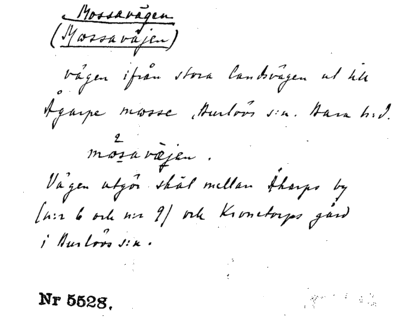 Mossavägen
(Mossaväjen)
vägen ifrån stora landsvägen ut till
Ågarpe mosse, Burlövs s:n. Bara h:d.
2
mosaväjen.
Vägen utgör skäl mellan Åkarps by
(n:r 6 och n:r 9) och Kronetorps gård
i Burlövs s:n.
Nr 5528.